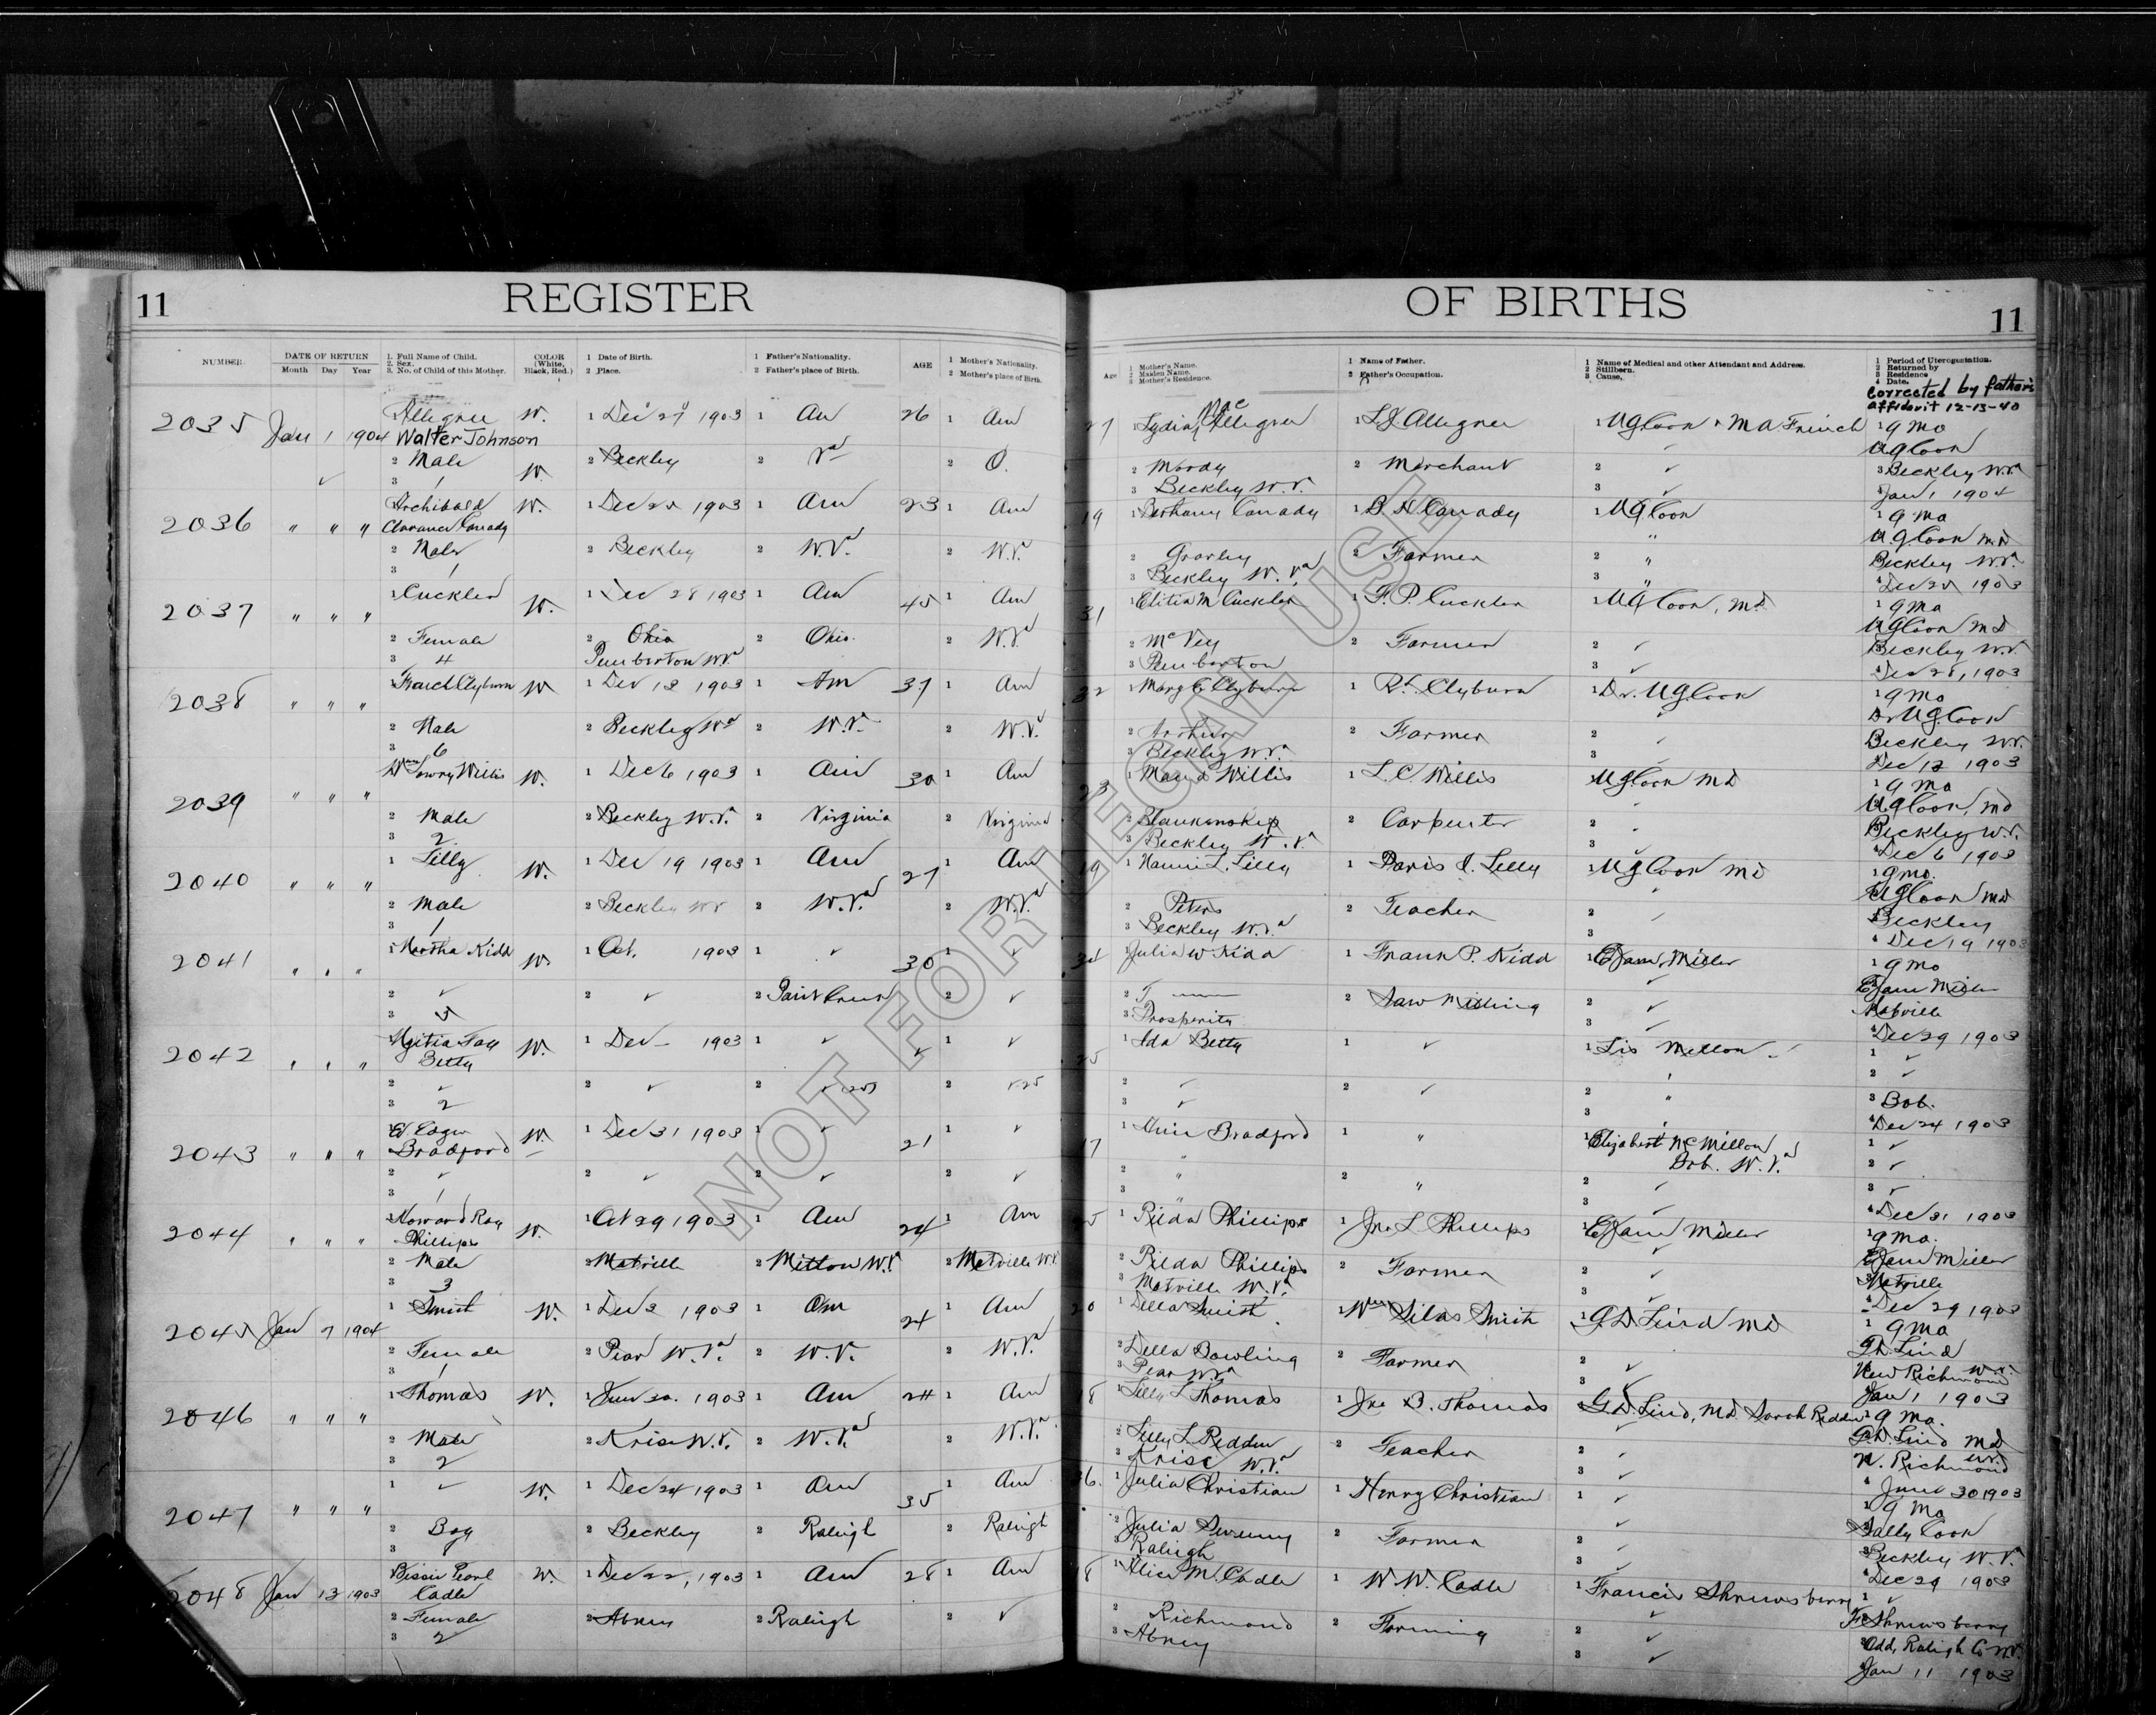 11 REGISTER OF BIRTHS 11
NUMBER. DATE OF RETURN Month Day Year
1. Full Name of Child. 2. Sex. 3. No. of Child of this Mother.
COLOR (White, Black, Red.)
1 Date of Birth. 2 Place.
1 Father's Nationality. 2 Father's place of Birth.
AGE
1 Mother's Nationality. 2 Mother's place of Birth.
Age
1 Mother's Name. 2 Maiden Name. 3 Mother's Residence.
1 Name of Father. 2 Father's Occupation.
1 Name of Medical and other Attendant and Address. 2 Stillborn. 3 Cause,
1 Period of Uterogustation. 2 Returned by 3 Residence 4 Date.
Corrected by father's affidavit 12-13-40
2035 Jan 1 1904 Allegree W. 1 Dec 27 1903 1 Am 26 1 Am 27 1 Lydia Mae Allegree 1 L.J. Allegree 1 U G Cook + M A French 1 9 mo
Walter Johnson
2 Male W. 2 Beckley 2 Va 2 O. 2 Moody 2 Merchant 2 ✓ U G Cook
3 1 3 Beckley W.V. 3 ✓ 3 Beckley W.Va
Jan 1 1904
2036 " " " Archibald Clarance Canady W. 1 Dec 25 1903 1 Am 23 1 Am 19 1 Bethany Canady 1 B H Canady 1 U G Cook 1 9 mo
2 Male 2 Beckley 2 W.Va. 2 W.Va. 2 2 Farmer 2 " U.G. Cook M.D
3 1 3 Beckley W.Va 3 " Beckley W.Va.
4 Dec 25 1903
2037 " " " 1 Cuckler W. 1 Dec 28 1903 1 Am 45 1 Am 31 1 Elitia M Cuckler 1 F. P. Cuckler 1 U G Cook, M.D. 1 9 mo
2 Female 2 Ohio 2 Ohio. 2 W.Va 2 McVey 2 Farmer 2 ✓ U G Cook M D
3 4 Pemberton W.V. 3 Pemberton 3 ✓ Beckley W.V.
4 Dec 28, 1903
2038 " " " Clyburn W 1 Dec 12 1903 1 Am 37 1 Am 32 1 Mary E Clyburn 1 R.L. Clyburn 1 Dr. U G Cook 1 9 mo
2 Male 2 Beckley W Va 2 W.V. 2 W.V. 2 Arthur 2 Farmer 2 ✓ Dr U G Cook
3 6 3 Beckley W.Va. 3 ✓ Beckley W.V.
Dec 12 1903
2039 " " " Wm Lowry Willis W. 1 Dec 6 1903 1 Am 30 1 Am 23 1 Maud Willis 1 L. C Willis 1 U G Cook M D 1 9 mo
2 Male 2 Beckley W.V. 2 Virginia 2 Virginia 2 Blankenship 2 Carpenter 2 U.G Cook, M D
3 2 3 Beckley W.V. 3 Beckley W.V.
4 Dec 6 1903
2040 " " " 1 Lilly W. 1 Dec 19 1903 1 Am 27 1 Am 19 1 Nannie L. Lilly 1 Davis J. Lilly 1 U G Cook M D 1 9 mo.
2 Male 2 Beckley W V 2 W.Va 2 W.Va 2 Peters 2 Teacher 2 ✓ U G Cook M D
3 1 3 Beckley W.Va 3 Beckley
4 Dec 19 1903
2041 " " " 1 Martha Kidd W. 1 Oct. 1903 1 ✓ 30 1 ✓ 34 1 Julia W Kidd 1 Frank P. Kidd 1 E Jane Miller 1 9 mo
2 ✓ 2 ✓ 2 Paint Creek 2 ✓ 2 2 Saw Milling 2 ✓ E Jane Miller
3 5 3 Prosperity 3 ✓ Matville
4 Dec 29 1903
2042 " " " Fay Betty W. 1 Dec — 1903 1 ✓ ✓ 1 ✓ 25 1 Ida Betty 1 ✓ 1 Lis Mellon 1 ✓
2 ✓ 2 ✓ 2 ✓ 25 2 ✓ 25 2 ✓ 2 ✓ 2 " 2 ✓
3 2 3 ✓ 3 3 Bob.
4 Dec 24 1903
2043 " " " Edgar Bradford W. 1 Dec 31 1903 1 ✓ 21 1 ✓ 17 1 Bradford 1 " 1 Elizabeth McMillon 1 ✓
Bob. W.Va
2 ✓ 2 ✓ 2 ✓ 2 ✓ 2 " 2 " 2 ✓ 2 ✓
3 1 3 " 3 ✓ 3 ✓
4 Dec 31 1903
2044 " " " Howard Ray Phillips W. 1 Oct 29 1903 1 Am 24 1 Am 25 1 Rilda Phillips 1 Jno L Phillips 1 E Jane Miller 1 9 mo.
2 Male 2 Matville 2 Mitton W.V. 2 Matville W.V. 2 Rilda Phillips 2 Farmer 2 ✓ E Jane Miller
3 3 3 Matville W.Va 3 ✓ 3 Matville
4 Dec 29 1903
2045 Jan 7 1904 1 Smith W. 1 Dec 3 1903 1 Am 24 1 Am 20 1 Della Smith 1 Wm Silas Smith 1 G D Lind M D 1 9 mo
2 Female 2 Pear W.Va. 2 W.V. 2 W.Va 2 Della Bowling 2 Farmer 2 ✓ G D Lind
3 1 3 Pear W Va 3 ✓ New Richmond W.V.
Jan 1 1903
2046 " " " 1 Thomas W. 1 Jun 30. 1903 1 Am 24 1 Am 18 1 Lilly L Thomas 1 Jno B. Thomas 1 G. D. Lind, M D. Sarah Redden 1 9 mo.
2 Male 2 Krise W.V. 2 W.Va 2 W.Va 2 Lilly L Redden 2 Teacher 2 ✓ G.D. Lind M D
3 2 3 Krise W.Va 3 ✓ N. Richmond W.V.
4 June 30 1903
2047 " " " 1 ✓ W. 1 Dec 24 1903 1 Am 35 1 Am 26. 1 Julia Christian 1 Henry Christian 1 ✓ 1 9 mo
2 Boy 2 Beckley 2 Raleigh 2 Raleigh 2 Julia Sweeney 2 Farmer 2 ✓ Sally Cook
3 3 Raleigh 3 ✓ 3 Beckley W.V.
4 Dec 29 1903
2048 Jan 13 1903 Bessie Pearl Cadle W. 1 Dec 22, 1903 1 Am 28 1 Am 18 1 Alice M. Cadle 1 W. W. Cadle 1 Francis Shrewsberry 1 ✓
2 Female 2 Abney 2 Raleigh 2 ✓ 2 Richmond 2 Farming 2 ✓ F Shrewsberry
3 2 3 Abney 3 ✓ Odd, Raleigh Co W.V.
4 Jan 11 1903
NOT FOR LEGAL USE